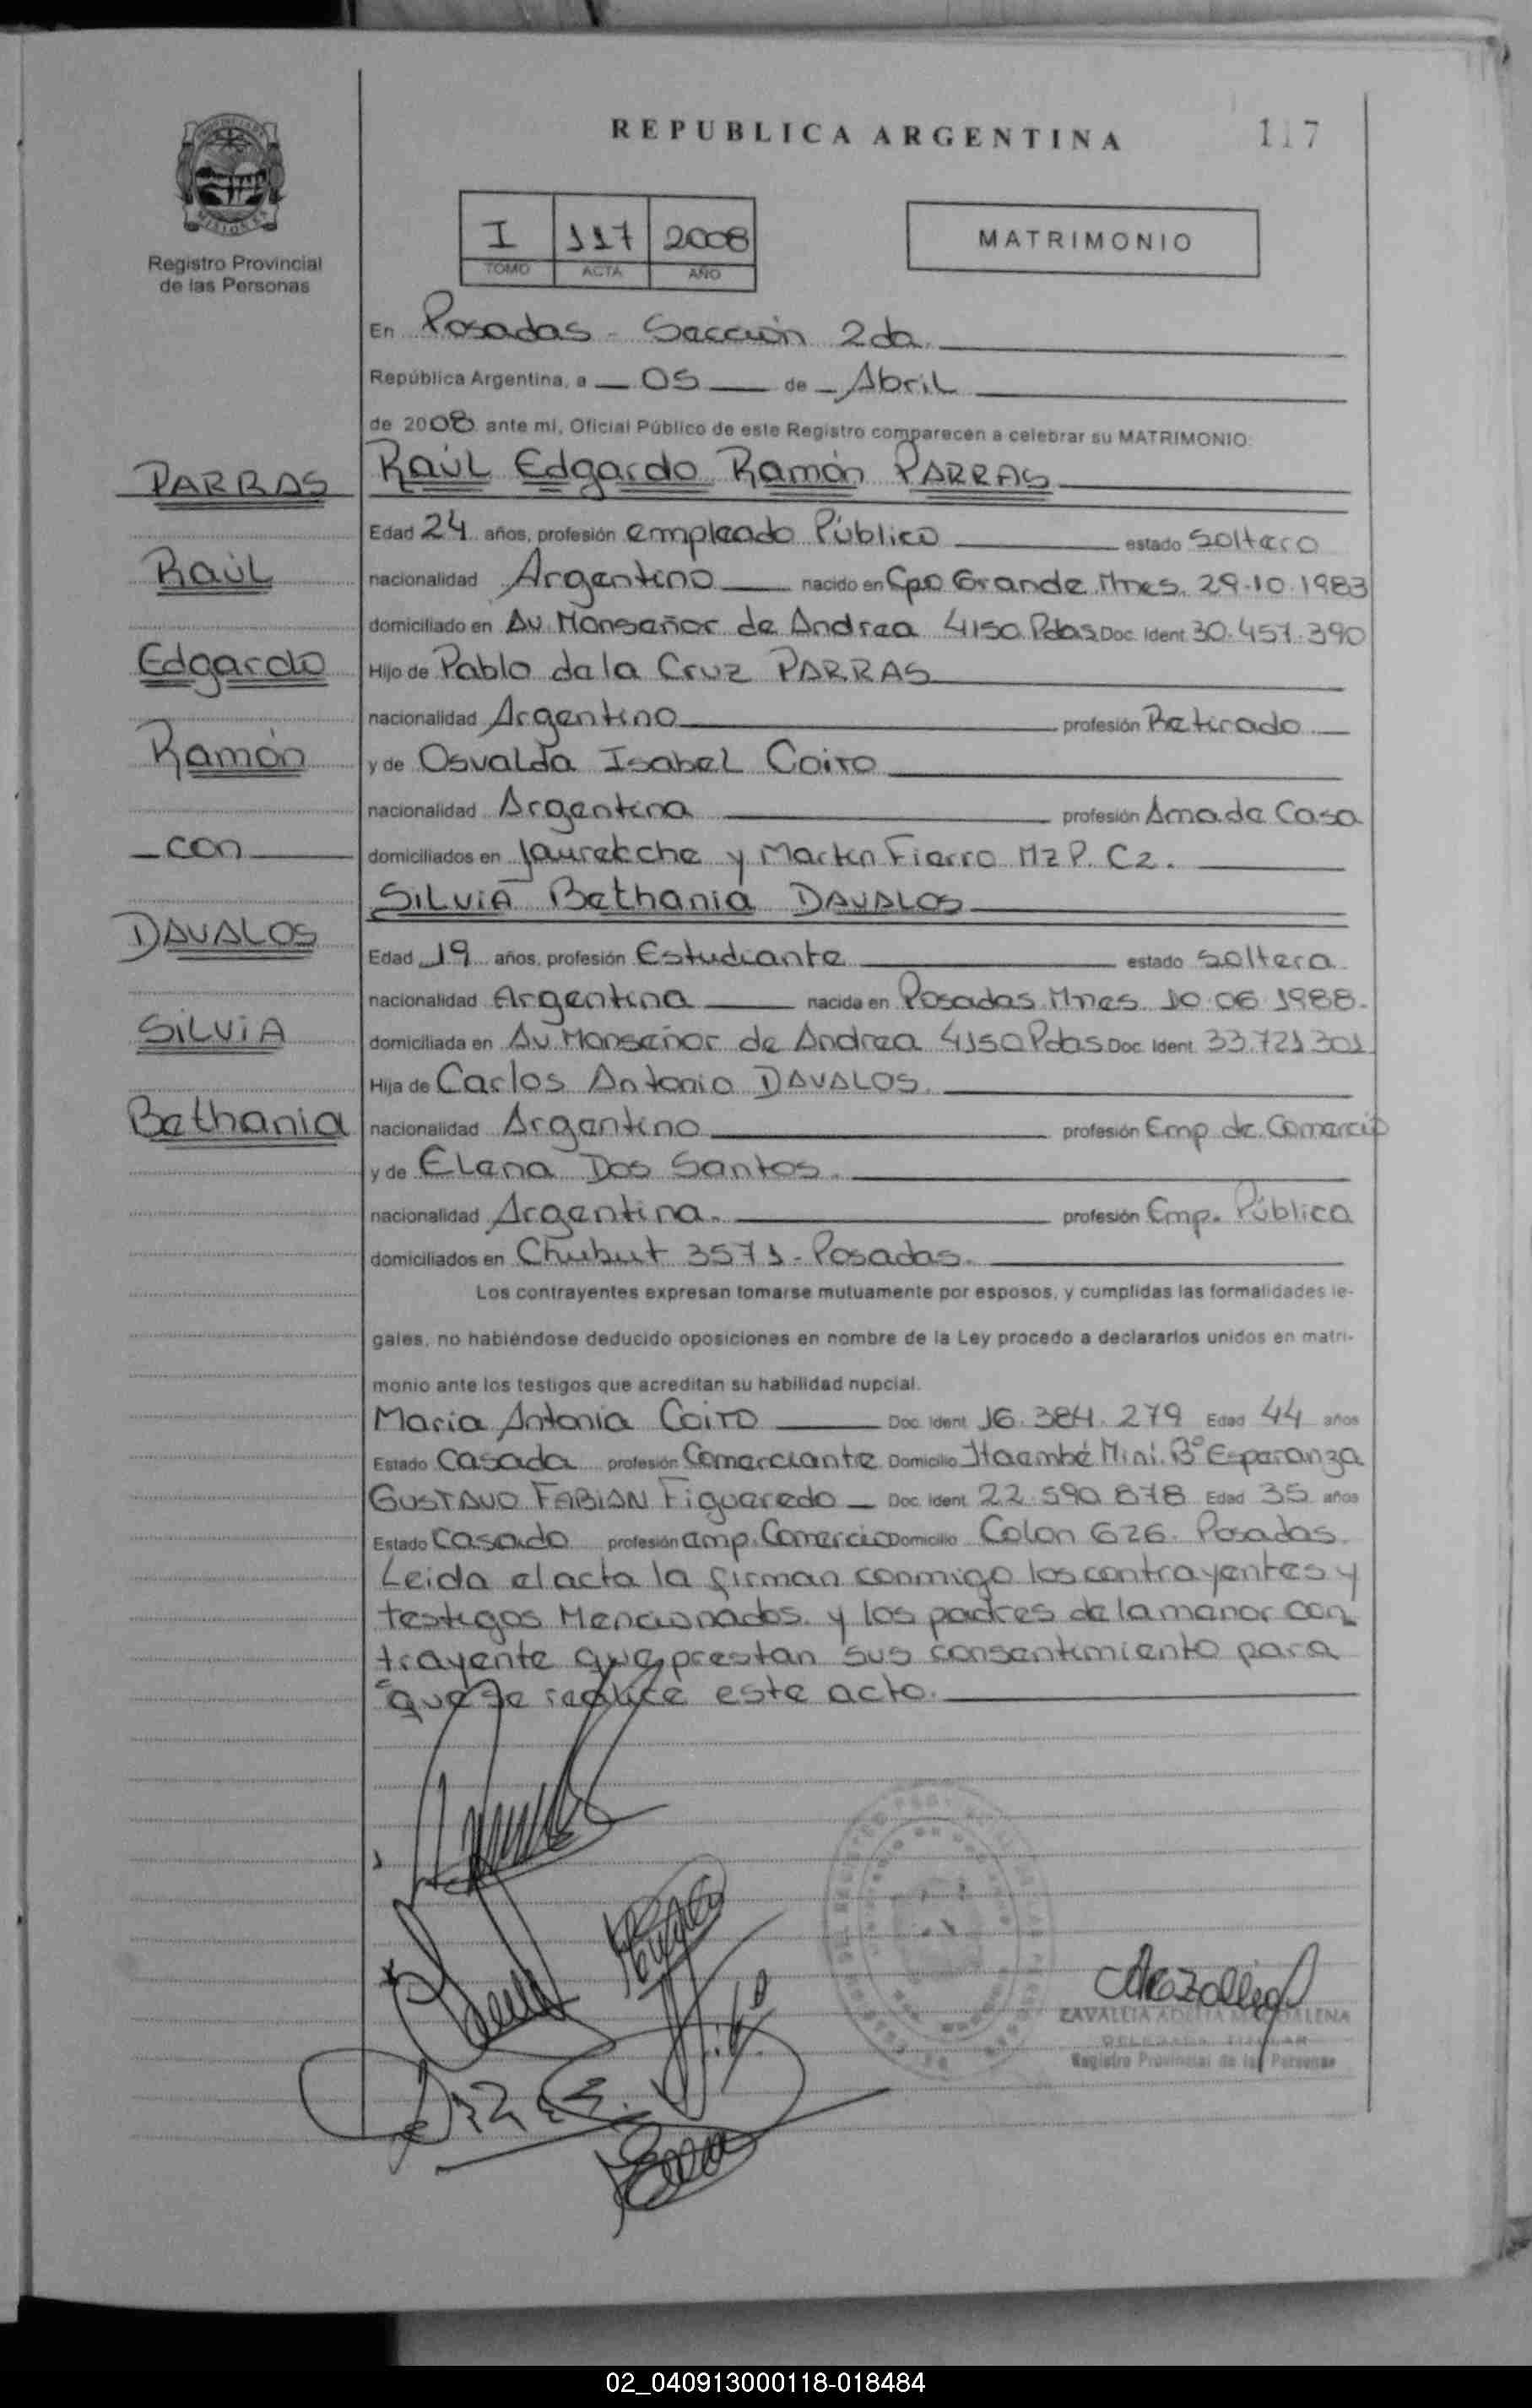 REPUBLICA ARGENTINA
117
PROVINCIA DE MISIONES
Registro Provincial
de las Personas
I 117 2008
TOMO ACTA AÑO
MATRIMONIO
En Posadas - Sección 2da.
República Argentina, a 05 de Abril
de 2008 ante mi, Oficial Público de este Registro comparecen a celebrar su MATRIMONIO:
PARRAS
Raúl Edgardo Ramón PARRAS
Edad 24 años, profesión empleado Público estado soltero
Raúl
nacionalidad Argentino nacido en Cpo Grande Mnes. 29.10.1983
domiciliado en Av Monseñor de Andrea 4150 Pdas Doc. Ident 30.457.390
Edgardo
Hijo de Pablo de la Cruz PARRAS
nacionalidad Argentino profesión Retirado
Ramón
y de Osvalda Isabel Coiro
nacionalidad Argentina profesión Ama de Casa
con
domiciliados en Jauretche y Martin Fierro Mz P. C2.
SILVIA Bethania DAVALOS
DAVALOS
Edad 19 años, profesión Estudiante estado soltera
nacionalidad Argentina nacida en Posadas Mnes. 10.06.1988.
SILVIA
domiciliada en Av. Monseñor de Andrea 4150 Pdas Doc. Ident. 33.721301
Hija de Carlos Antonio DAVALOS.
Bethania
nacionalidad Argentino profesión Emp de Comercio
y de Elena Dos Santos.
nacionalidad Argentina. profesión Emp. Pública
domiciliados en Chubut 3571 - Posadas.
Los contrayentes expresan tomarse mutuamente por esposos, y cumplidas las formalidades le-
gales, no habiéndose deducido oposiciones en nombre de la Ley procedo a declararlos unidos en matri-
monio ante los testigos que acreditan su habilidad nupcial.
Maria Antonia Coiro Doc. Ident 16.384.279 Edad 44 años
Estado Casada profesión Comerciante Domicilio Itaembé Mini. B° Esperanza
GUSTAVO FABIAN Figueredo Doc. Ident. 22.590.878 Edad 35 años
Estado Casado profesión emp. Comercio Domicilio Colon 626. Posadas.
Leida el acta la firman conmigo los contrayentes y
testigos Mencionados. y los padres de la menor con
trayente que prestan sus consentimiento para
que se realice este acto.
ZAVALLIA ADELIA MAGDALENA
DELEGADA TITULAR
Registro Provincial de las Personas
02_040913000118-018484